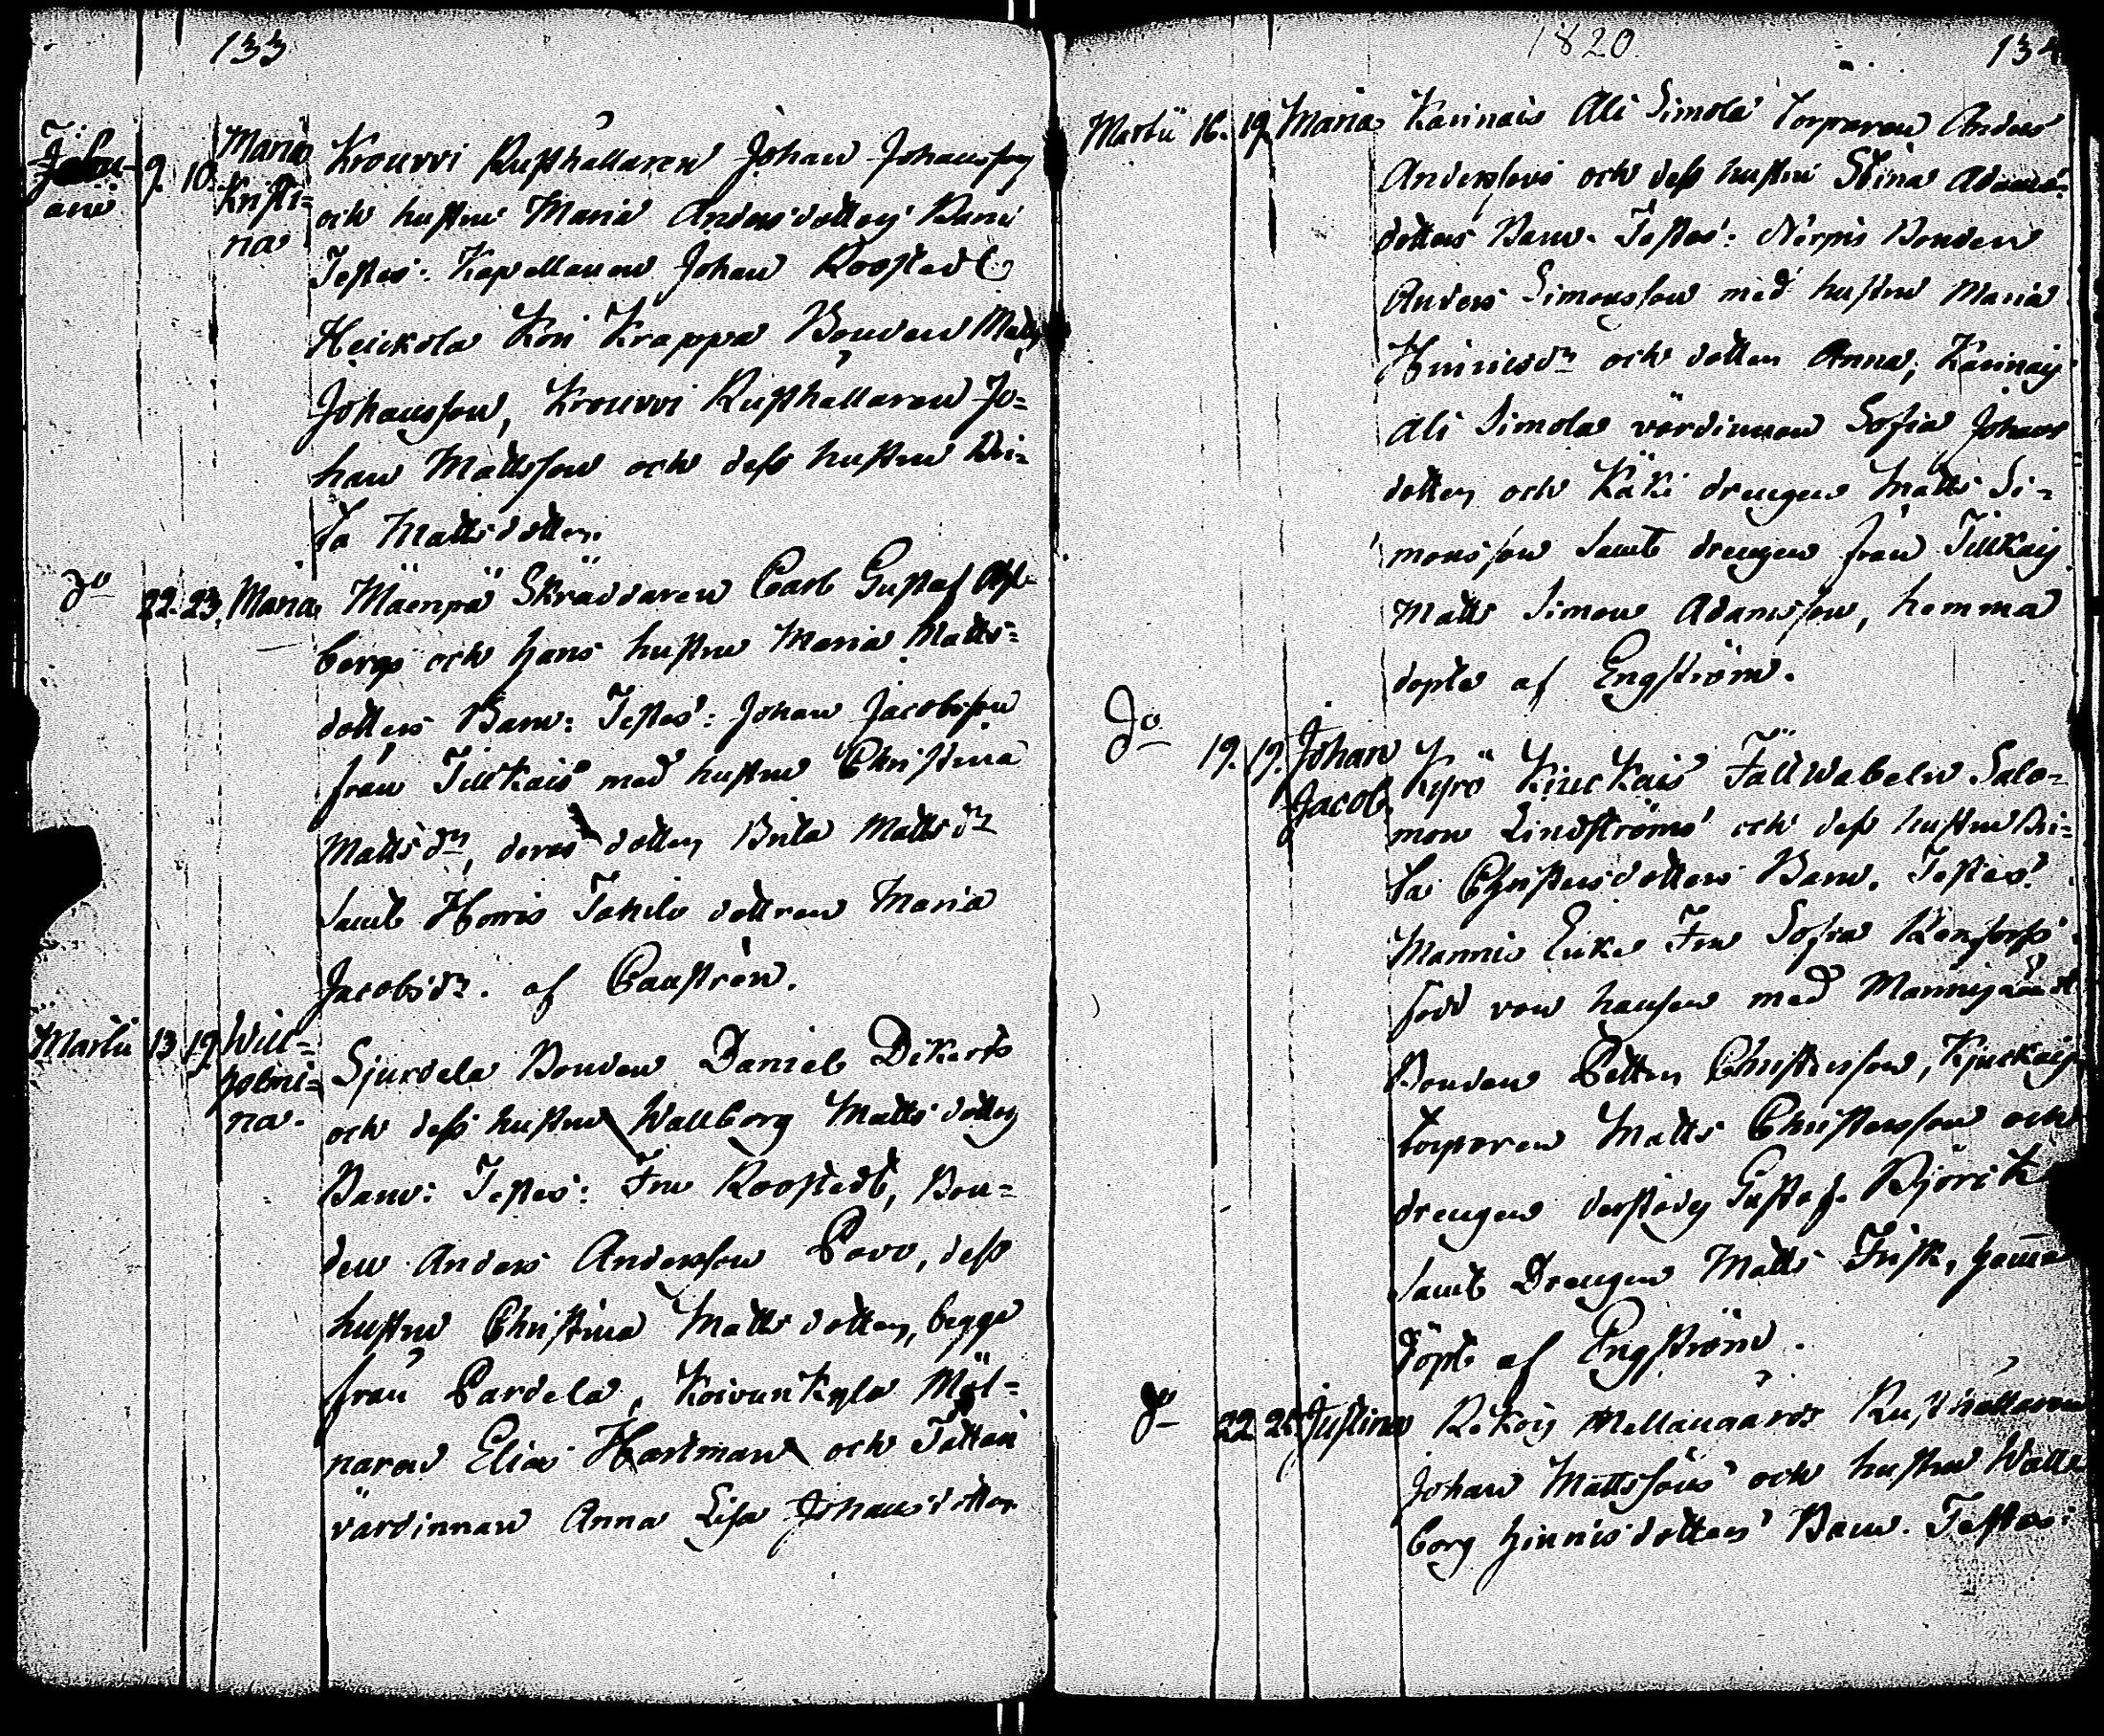 133
Febru-
arii 9. 10. Maria
Kristi=
na
Krouvvi Rusthållaren Johan Johansson
och hustru Maria Andersdotters Barn
Testes: Kapellanen Johan Roostedt
Heickola Kon Krappa Bonden Matts
Johansson, Krouvvi Rusthållaren Jo=
han Mattsson och dess hustru Bri=
ta Mattsdotter.
do 22. 23. Maria Mäenpä Skräddaren Carl Gustaf
bergs och hans hustru Maria Matts=
dotters Barn: Testes: Johan Jacobsson
från Tillkais med hustru Christina
Mattsdr, deras dotter Brita Mattsdr
samt Horris Tahilo dottren Maria
Jacobsdr. af Caustrén.
Martii 13 19. Will=
helmi=
na.
Sjurdela Bonden Daniel Dikerts
och dess hustru Wallborg Mattsdotters
Barn: Testes: Fru Roostedt, Bon=
den Anders Andersson Pavo, dess
hustru Christina Mattsdotter, begge
från Pardela, Koivunkylä Möl=
naren Elias Hartman och Tattari
värdinnan Anna Lisa Johansdotter
1820. 134
Martii 16. 19. Maria Karinais Ali Simola Torparen Anders
Anderssons och dess hustru Stina Adams=
dotters Barn. Testes: Nerpis Bonden
Anders Simonsson med hustru Maria
Hinricsdr och dotter Anna, Karinais
Ali Simola värdinnan Sofia Johans
dotter och Käki drengen Matts Si=
monsson samt drengen från Tillkais
Matts Simon Adamsson, hemma
döpte af Engström.
do 19. 19. Johan
Jacob
Kyrö Kiuckais Fältwabeln Salo=
mon Lindströms och dess hustru Bri=
ta Christersdotters Barn. Testes:
Mannis Enke Fru Sofia Renfors
född von hausen med Mannis
Bonden Petter Christersson, Kjuckais
torparen Matts Christersson och
drengen derstädes Gustaf Björck
samt Drengen Matts Frisk, hema
döpt af Engström.
do 22 25. Justina Rekois Mellangårds Rusthållaren
Johan Mattssons och hustru Wall
borg Hinricsdotters Barn. Testes: